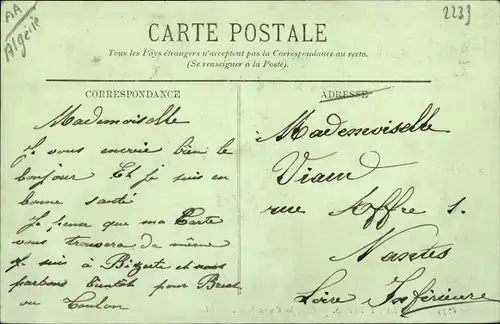 AA
Algérie
2233
CARTE POSTALE
Tous les Pays étrangers n'acceptent pas la Correspondance au recto.
(Se renseigner à la Poste).
CORRESPONDANCE
Mademoiselle
Je vous envoie bien le
bonjour Et je suis en
bonne santé
Je pense que ma Carte
vous trouvera de même
Je suis à Bizerte et nous
partons bientôt pour Brest
ou Toulon
ADRESSE
Mademoiselle
rue Affre 1.
Nantes
Loire Inférieure